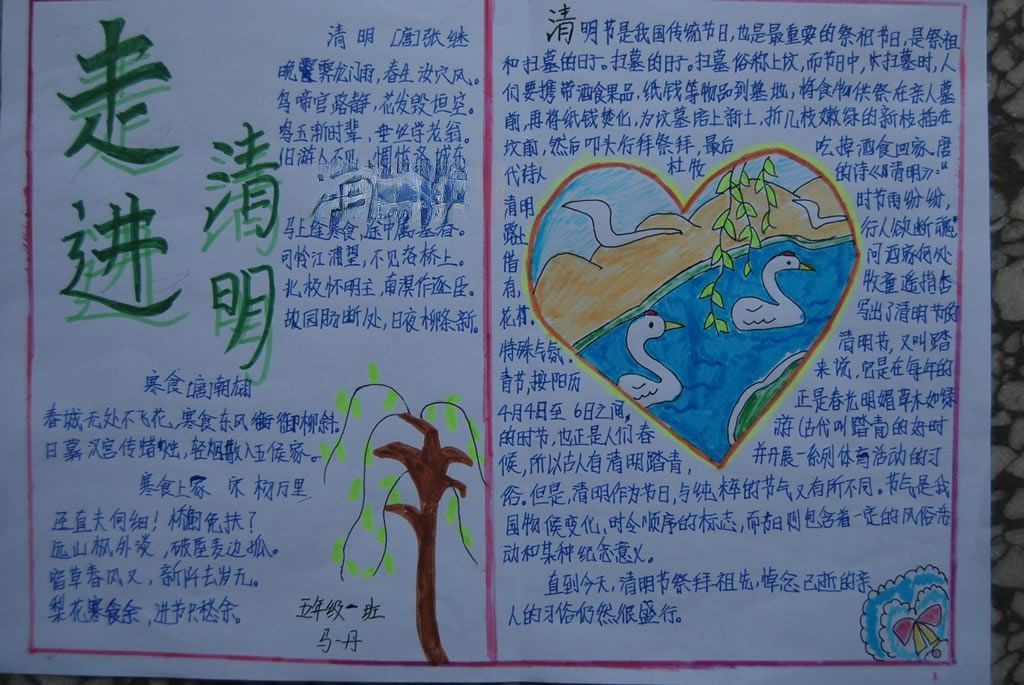 走进
清明
清明 [唐]张继
晚霁龙门雨,春生汝穴风。
鸟啼官路静,花发毁垣空。
鸣玉渐时辈,垂丝学老翁。
旧游人不见,惆怅洛城东
清明
马上逢寒食,途中属暮春。
可怜江浦望,不见洛桥上。
北极怀明主,南溟作逐臣。
故园肠断处,日夜柳条新。
寒食 [唐]南翃
春城无处不飞花,寒食东风御柳斜。
日暮汉宫传蜡烛,轻烟散入五侯家。
寒食上冢 宋 杨万里
迳直夫何细!桥危免扶?
远山枫外淡,破屋麦边孤。
宿草春风又,新阡去岁无。
梨花寒食余,进节只愁余。
五年级一班
马丹
清明节是我国传统节日,也是最重要的祭祖节日,是祭祖
和扫墓的日子。扫墓的日子。扫墓俗称上坟,而节日中,扫墓时,人
们要携带酒食果品,纸钱等物品到墓地,将食物供祭在亲人墓
前,再将纸钱焚化,为坟墓培上新土,折几枝嫩绿的新枝插在
坟前,然后叩头行拜祭拜,最后 吃掉酒食回家。唐
代诗人 杜牧 的诗《清明》:“
清明 时节雨纷纷,
路上 行人欲断魂”
借 问酒家何处
有, 牧童遥指杏
花村。 写出了清明节的
特殊气氛。 清明节,又叫踏
青节,按阳历 来说,它是在每年的
4月4日至6日之间, 正是春光明媚草木如绿
的时节,也正是人们春 游(古代叫踏青)的好时
候,所以古人有清明踏青, 并开展一系列体育活动的习
俗。但是,清明作为节日,与纯粹的节气又有所不同。节气是我
国物候变化,时令顺序的标志,而节日则包含着一定的风俗活
动和某种纪念意义。
直到今天,清明节祭拜祖先,悼念己逝的亲
人的习俗仍然很盛行。